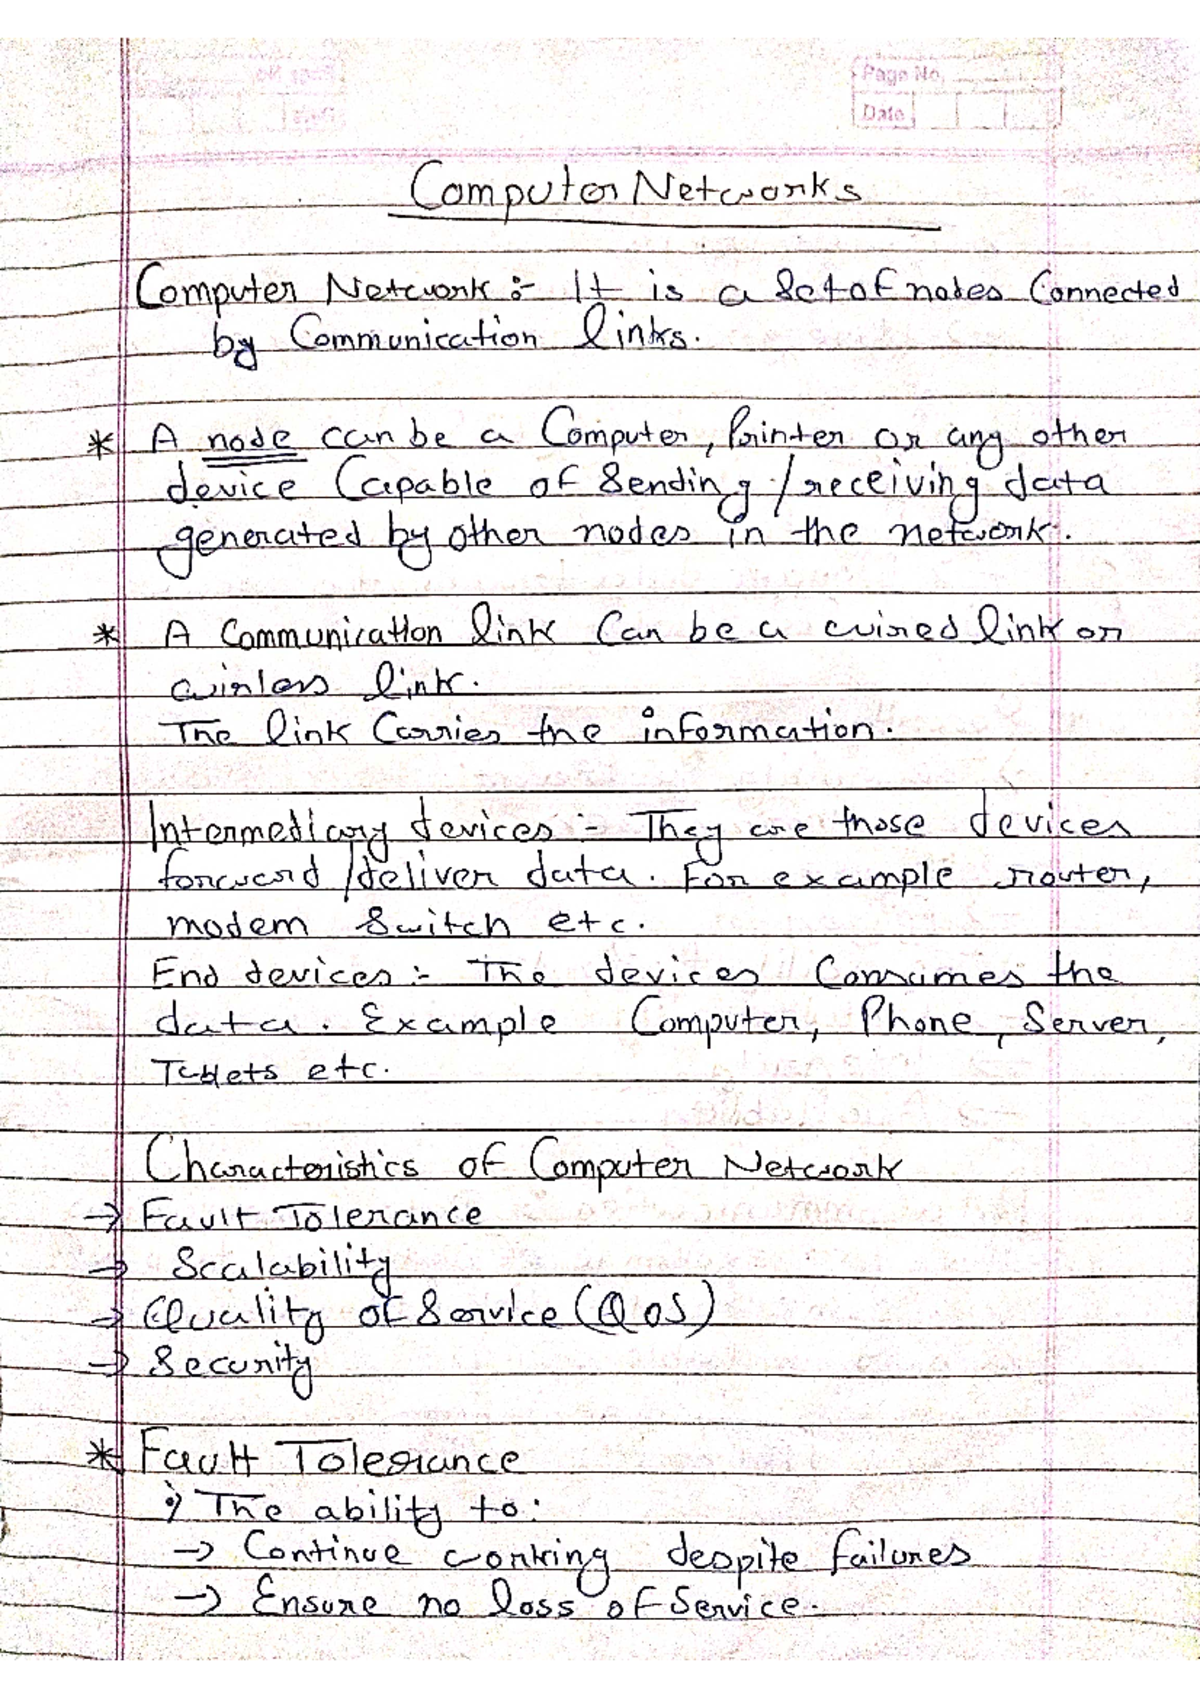 Page No.
Date
Computer Networks
Computer Network :- It is a Set of nodes Connected
by Communication links.
* A node can be a Computer, Printer or any other
device Capable of Sending / receiving data
generated by other nodes in the network.
* A Communication link Can be a wired link or
wirless link.
The link Carries the information.
Intermediary devices :- They are those devices
forward / deliver data. For example router,
modem Switch etc.
End devices :- The devices Consumes the
data. Example Computer, Phone, Server,
Tablets etc.
Characteristics of Computer Network
→ Fault Tolerance
→ Scalability
→ Quality of Service (QoS)
→ Security
* Fault Tolerance
The ability to:
→ Continue working despite failures
→ Ensure no loss of Service.